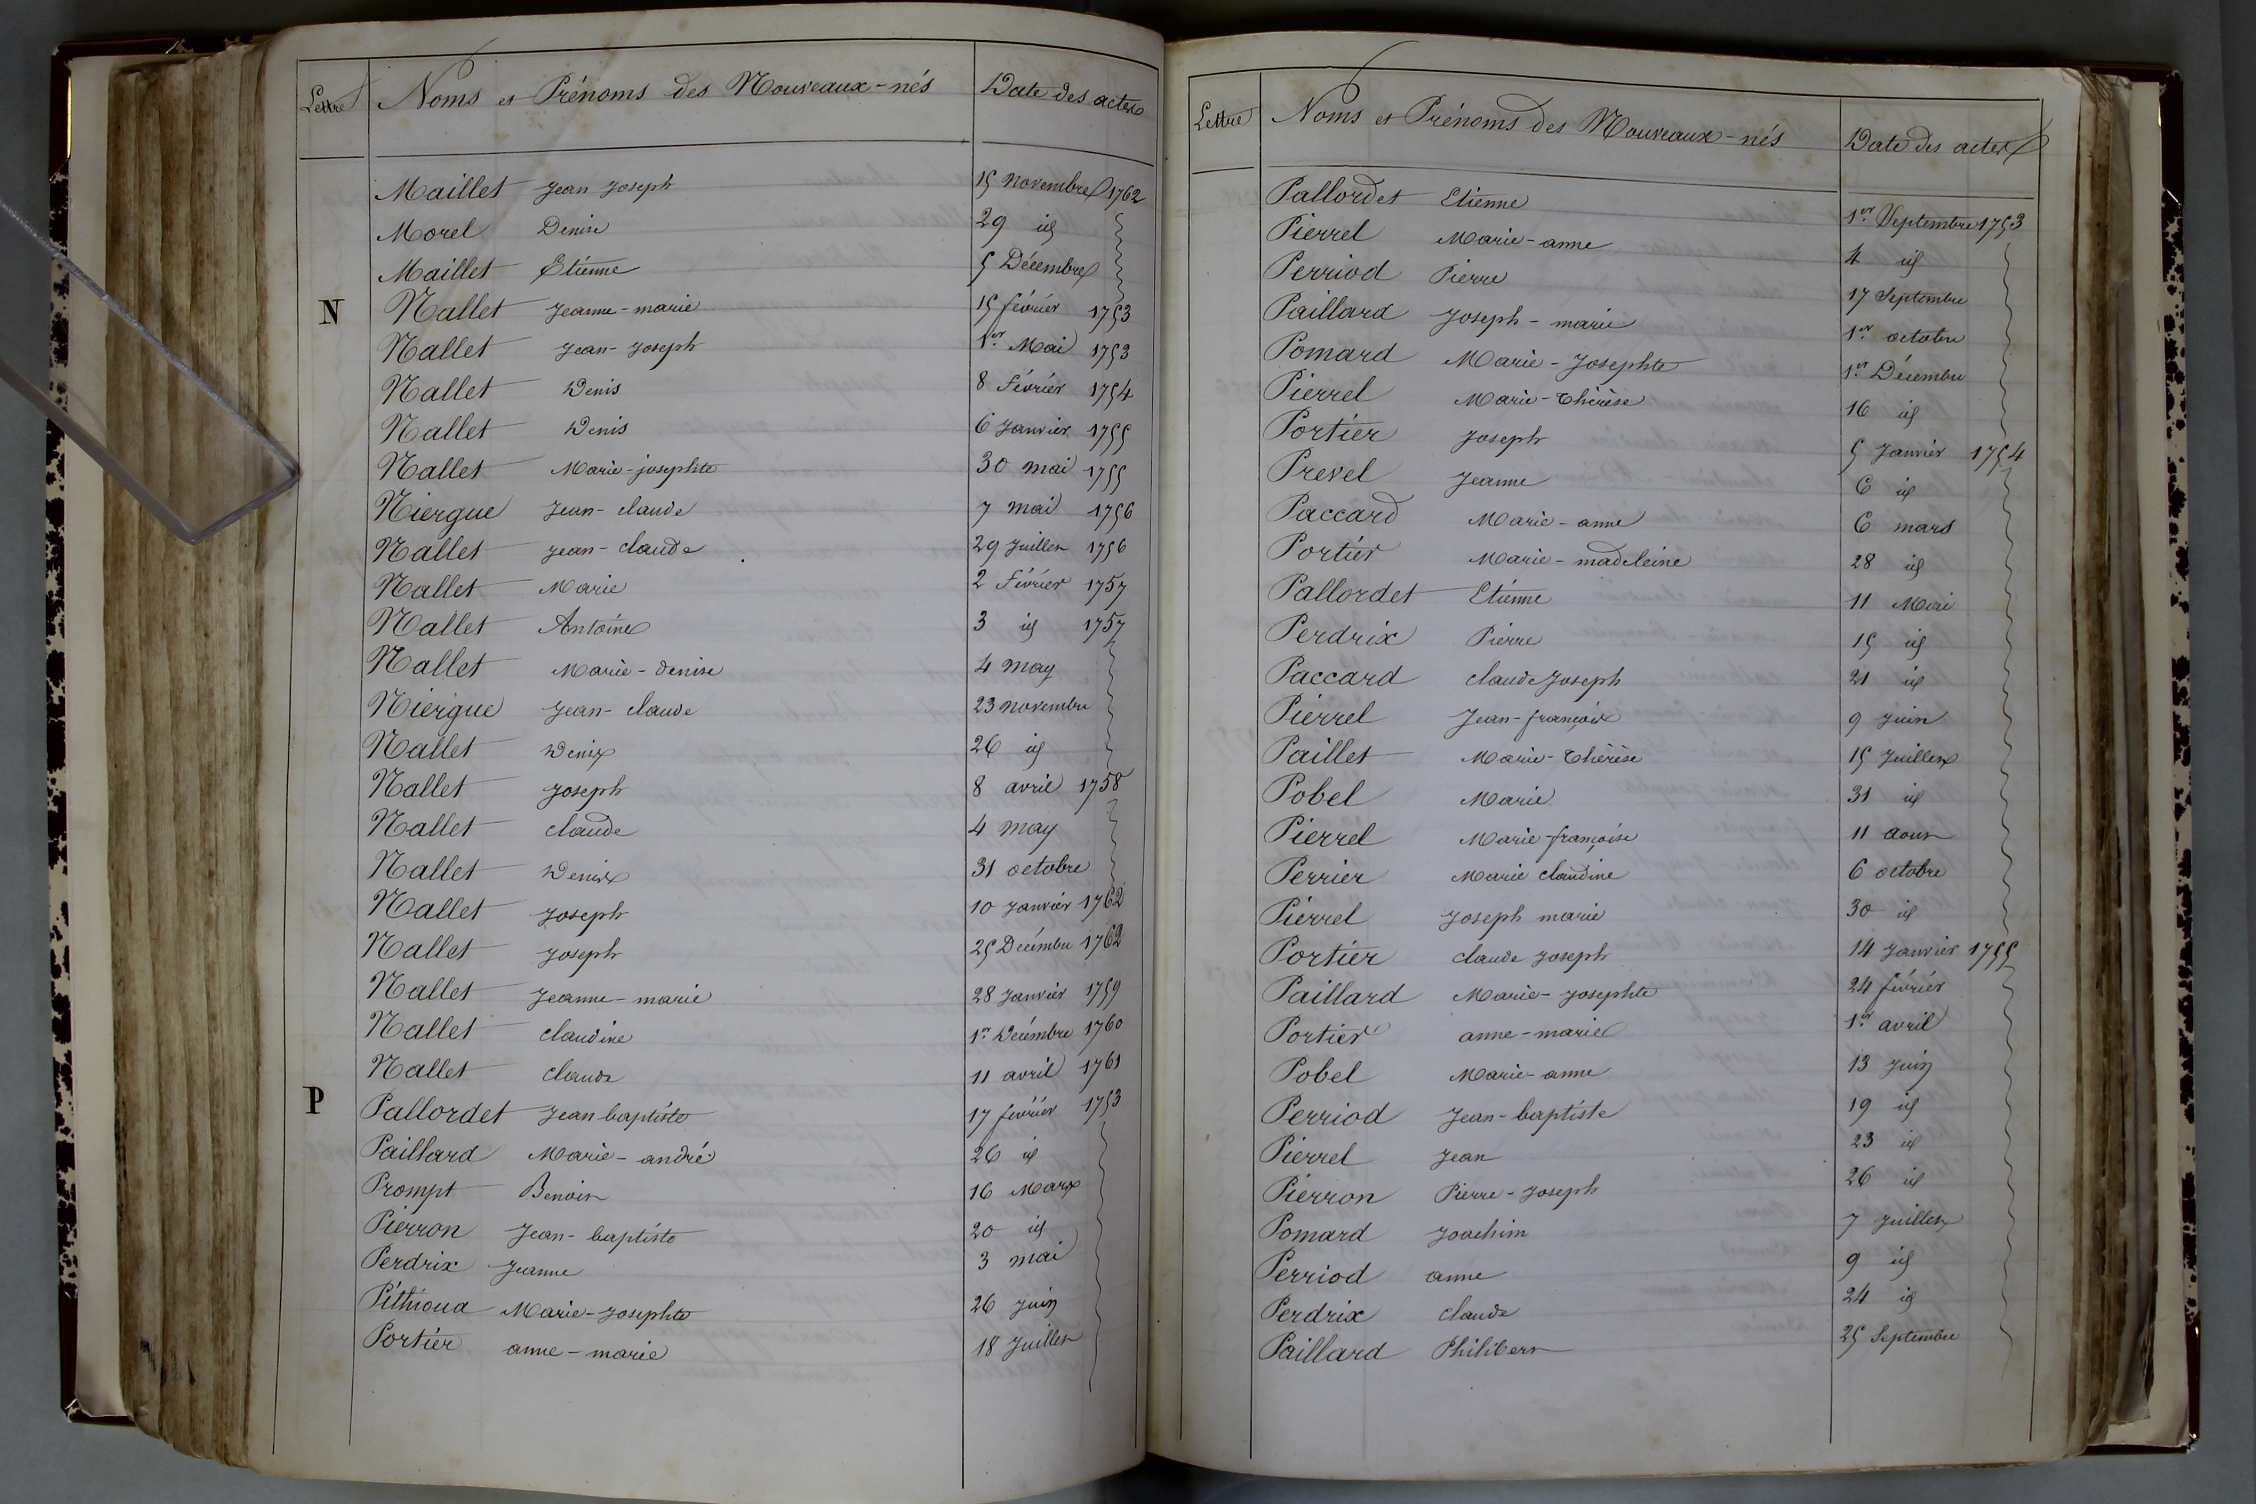 Lettre Noms et Prénoms des Nouveaux-nés Date des actes
Maillet Jean Joseph 15 Novembre 1762
Morel Denise 29 id
Maillet Etienne 5 Décembre
N Nallet Jeanne-marie 15 février 1753
Nallet Jean-Joseph 1er Mai 1753
Nallet Denis 8 Février 1754
Nallet Denis 6 Janvier 1755
Nallet Marie-josephte 30 mai 1755
Niergue Jean-claude 7 mai 1756
Nallet Jean-claude 29 Juillet 1756
Nallet Marie 2 Février 1757
Nallet Antoine 3 id 1757
Nallet Marie-denise 4 may
Niergue Jean-claude 23 novembre
Nallet Denis 26 id
Nallet Joseph 8 avril 1758
Nallet claude 4 may
Nallet Denis 31 octobre
Nallet Joseph 10 Janvier 1762
Nallet Joseph 25 Decémbre 1762
Nallet Jeanne-marie 28 Janvier 1759
Nallet claudine 1er Decémbre 1760
Nallet claude 11 avril 1761
P Pallordet Jean baptiste 17 février 1753
Paillard Marie-andré 26 id
Prompt Benoit 16 Mars
Pierron Jean-baptiste 20 id
Perdrix Jeanne 3 mai
Pithioud Marie-Josephte 26 Juin
Portier anne-marie 18 Juillet
Lettre Noms et Prénoms des Nouveaux-nés Date des actes
Pallordet Etienne 1er Septembre 1753
Pierrel Marie-anne 4 id
Perriod Pierre 17 Septembre
Paillard Joseph-marie 1er octobre
Pomard Marie-Josephte 1er Décembre
Pierrel Marie-Thérèse 16 id
Portier Joseph 5 Janvier 1754
Prevel Jeanne 6 id
Paccard Marie-anne 6 mars
Portier Marie-madeleine 28 id
Pallordet Etienne 11 Mai
Perdrix Pierre 15 id
Paccard claude Joseph 21 id
Pierrel Jean-françois 9 Juin
Paillet Marie-Thérèse 15 Juillet
Pobel Marie 31 id
Pierrel Marie-françoise 11 aout
Perrier Marie claudine 6 octobre
Pierrel Joseph marie 30 id
Portier claude Joseph 14 Janvier 1755
Paillard Marie-Josephte 24 février
Portier anne-marie 1er avril
Pobel Marie-anne 13 Juin
Perriod Jean-baptiste 19 id
Pierrel Jean 23 id
Pierron Pierre-Joseph 26 id
Pomard Joachim 7 Juillet
Perriod anne 9 id
Perdrix claude 24 id
Paillard Philibert 25 Septembre